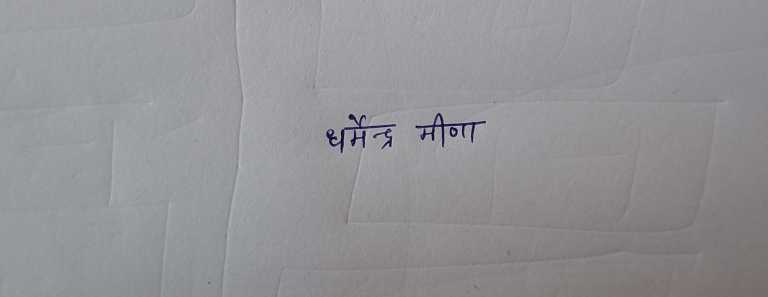 धर्मेन्द्र मीणा